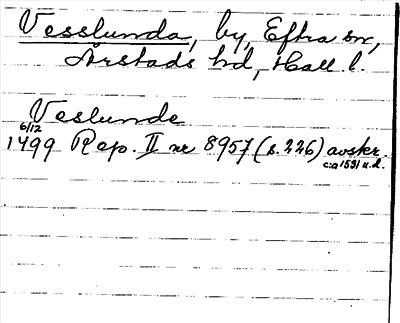 Vesslunda, by, Eftra sn,
Årstads hd, Hall. l.
Veslunde
6/12
1499 Rep. II nr 8957 (s. 226) avskr.
c:a 1531 u.d.